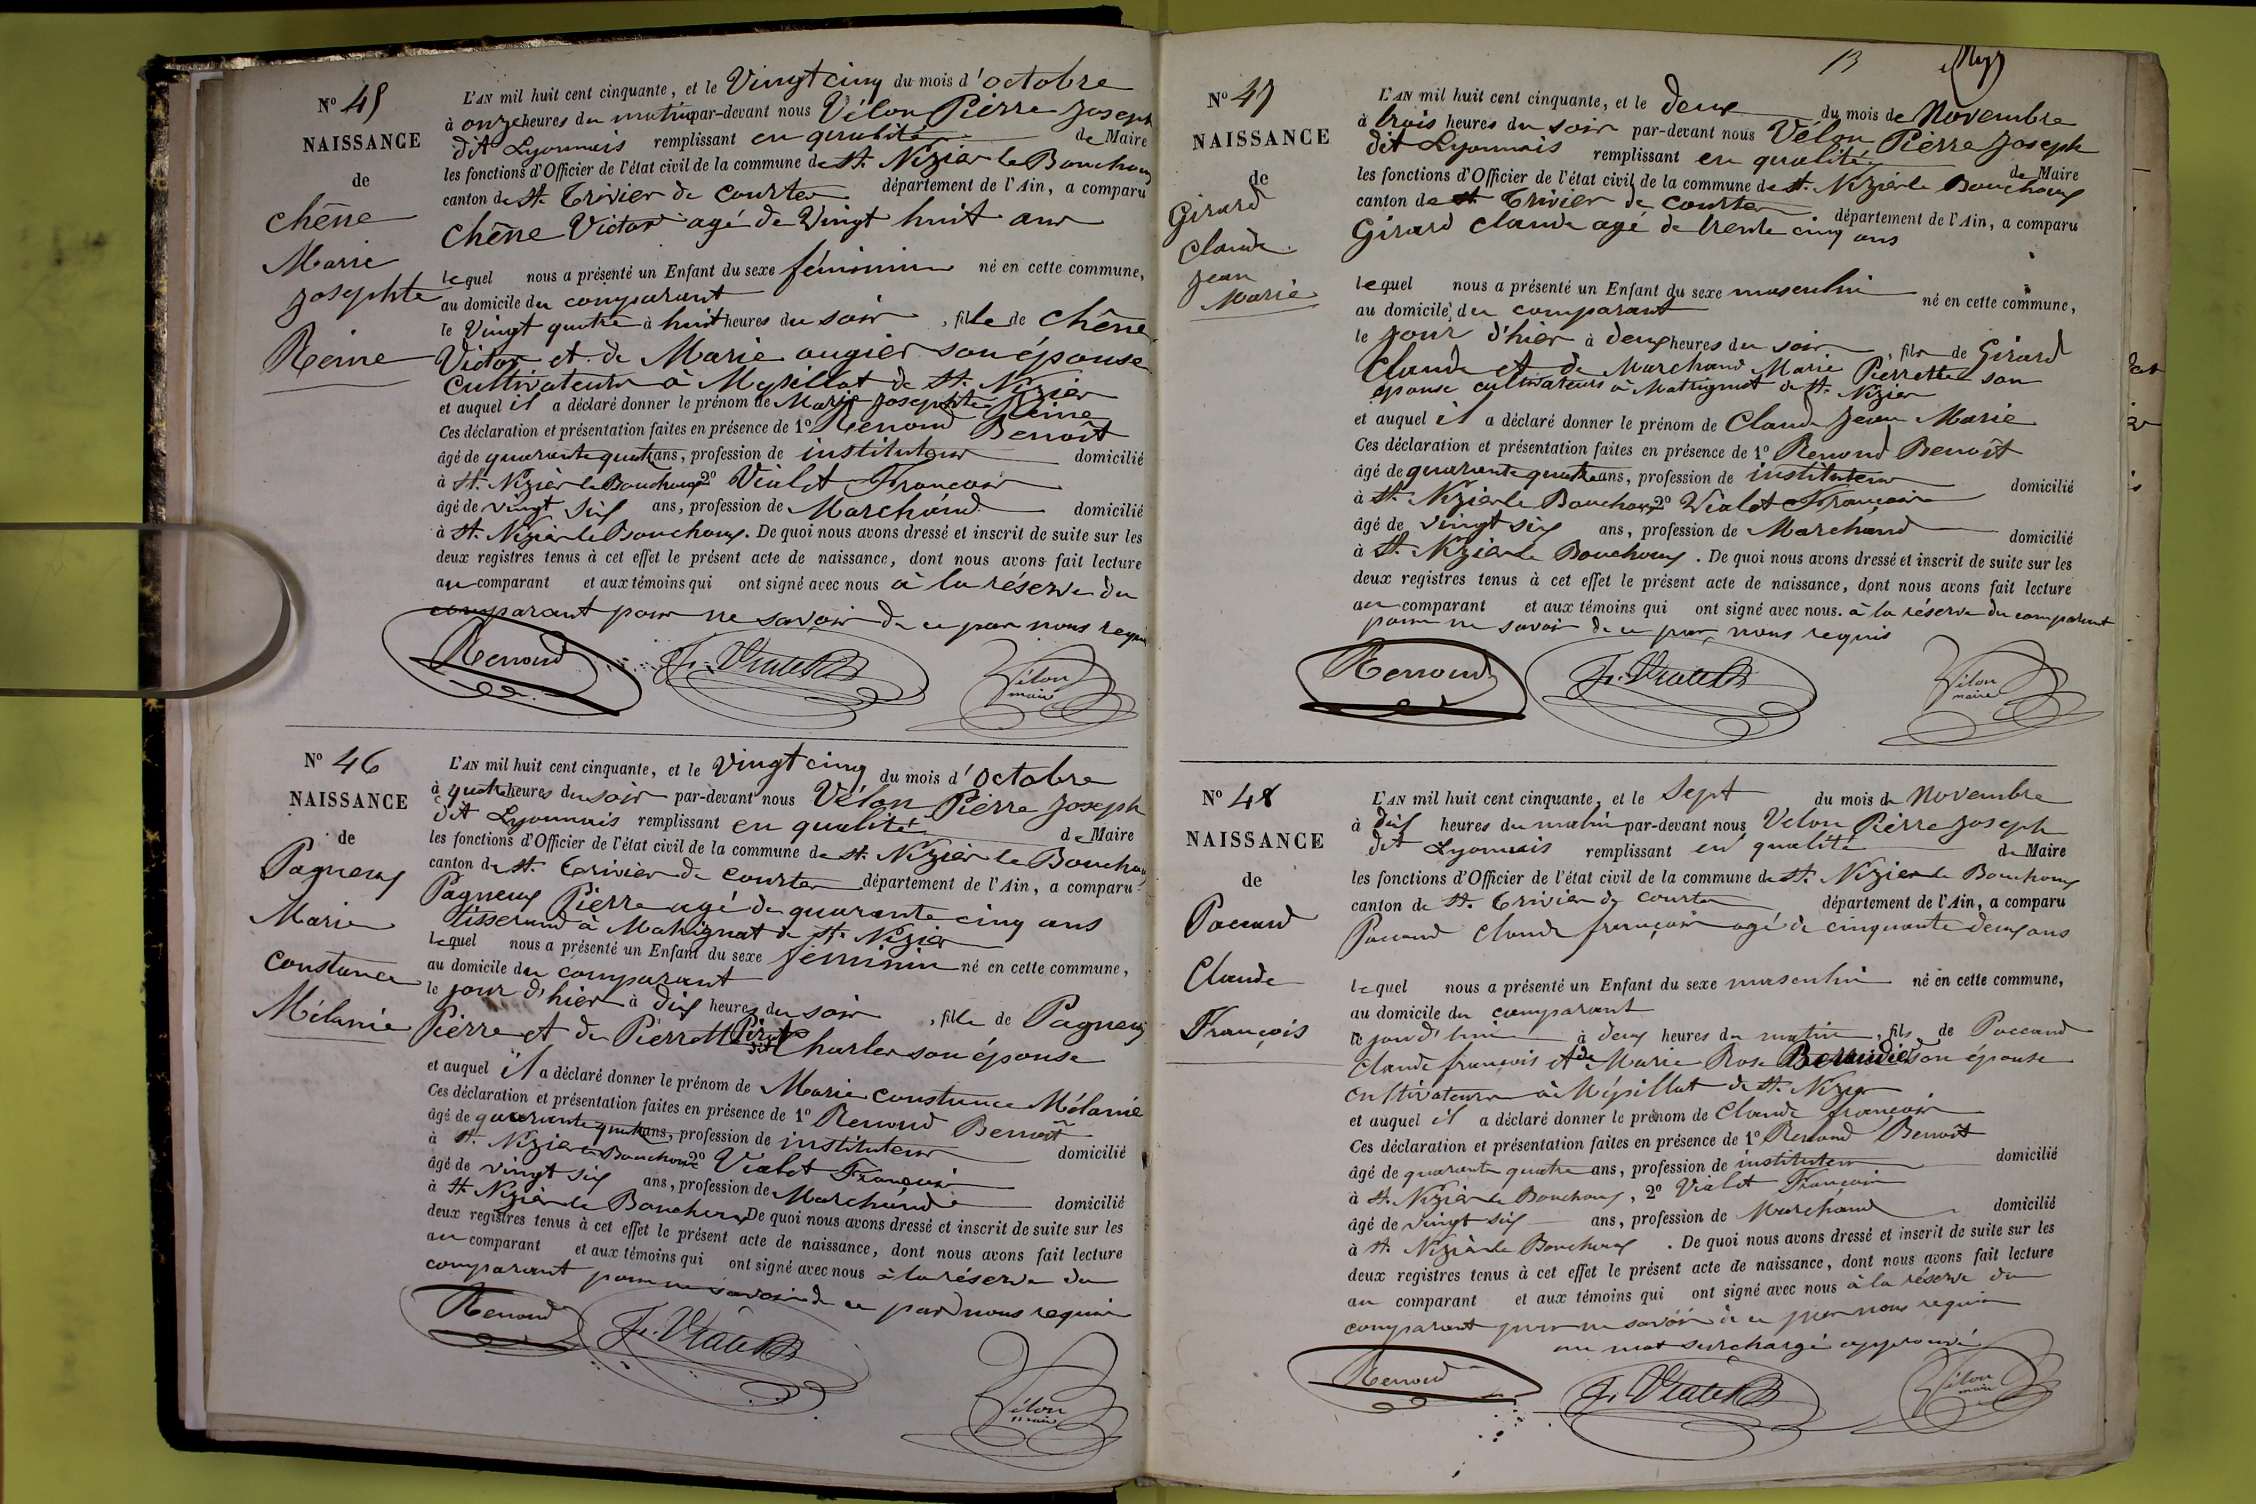 N° 45
NAISSANCE
de
Chêne
Marie
Josephte
Reine
L'AN mil huit cent cinquante, et le Vingt cinq du mois d'octobre
à onze heures du matin par-devant nous Vélon Pierre Joseph
dit Lyonnais remplissant en qualité de Maire
les fonctions d'Officier de l'état civil de la commune de St. Nizier le Bouchoux
canton de St. Trivier de Courtes département de l'Ain, a comparu
Chêne Victor agé de Vingt huit ans
lequel nous a présenté un Enfant du sexe féminin né en cette commune,
au domicile du comparant
le Vingt quatre à huit heures du soir, fille de Chêne
Victor et de Marie augier son épouse
Cultivateurs à Mépillat de St. Nizier
et auquel il a déclaré donner le prénom de Marie Josephte Reine
Ces déclaration et présentation faites en présence de 1° Renoud Benoît
âgé de quarante quatre ans, profession de instituteur domicilié
à St. Nizier le Bouchoux 2° Vialet François
âgé de vingt six ans, profession de Marchand domicilié
à St. Nizier le Bouchoux. De quoi nous avons dressé et inscrit de suite sur les
deux registres tenus à cet effet le présent acte de naissance, dont nous avons fait lecture
au comparant et aux témoins qui ont signé avec nous à la réserve du
comparant pour ne savoir de ce par nous requis
Renoud F. Vialet Vélon
maire
N° 46
NAISSANCE
de
Pagneux
Marie
Constance
Mélanie
L'AN mil huit cent cinquante, et le Vingt cinq du mois d'octobre
à quatre heures du soir par-devant nous Vélon Pierre Joseph
dit Lyonnais remplissant en qualité de Maire
les fonctions d'Officier de l'état civil de la commune de St. Nizier le Bouchoux
canton de St. Trivier de Courtes département de l'Ain, a comparu
Pagneux Pierre agé de quarante cinq ans
tisserand à Matignat de St. Nizier
lequel nous a présenté un Enfant du sexe féminin né en cette commune,
au domicile du comparant
le jour d'hier à dix heures du soir, fille de Pagneux
Pierre et de Pierrette dit Charles son épouse
et auquel il a déclaré donner le prénom de Marie Constance Mélanie
Ces déclaration et présentation faites en présence de 1° Renoud Benoît
âgé de quarante quatre ans, profession de instituteur domicilié
à St. Nizier le Bouchoux 2° Vialet François
âgé de vingt six ans, profession de Marchand domicilié
à St. Nizier le Bouchoux De quoi nous avons dressé et inscrit de suite sur les
deux registres tenus à cet effet le présent acte de naissance, dont nous avons fait lecture
au comparant et aux témoins qui ont signé avec nous à la réserve du
comparant pour ne savoir de ce par nous requis
Renoud F. Vialet Vélon
maire
13
N° 47
NAISSANCE
de
Girard
Claude
Jean
Marie
L'AN mil huit cent cinquante, et le deux du mois de Novembre
à trois heures du soir par-devant nous Vélon Pierre Joseph
dit Lyonnais remplissant en qualité de Maire
les fonctions d'Officier de l'état civil de la commune de St. Nizier le Bouchoux
canton de St. Trivier de Courtes département de l'Ain, a comparu
Girard Claude agé de trente cinq ans
lequel nous a présenté un Enfant du sexe masculin né en cette commune,
au domicile du comparant
le jour d'hier à deux heures du soir, fils de Girard
Claude et de Marchand Marie Pierrette son
épouse cultivateurs à Matignat de St. Nizier
et auquel il a déclaré donner le prénom de Claude Jean Marie
Ces déclaration et présentation faites en présence de 1° Renoud Benoît
âgé de quarante quatre ans, profession de instituteur domicilié
à St. Nizier le Bouchoux 2° Vialet François
âgé de vingt six ans, profession de Marchand domicilié
à St. Nizier le Bouchoux. De quoi nous avons dressé et inscrit de suite sur les
deux registres tenus à cet effet le présent acte de naissance, dont nous avons fait lecture
au comparant et aux témoins qui ont signé avec nous. à la réserve du comparant
pour ne savoir de ce par nous requis
Renoud F. Vialet Vélon
maire
N° 48
NAISSANCE
de
Paccaud
Claude
François
L'AN mil huit cent cinquante, et le Sept du mois de Novembre
à dix heures du matin par-devant nous Vélon Pierre Joseph
dit Lyonnais remplissant en qualité de Maire
les fonctions d'Officier de l'état civil de la commune de St. Nizier le Bouchoux
canton de St. Trivier de Courtes département de l'Ain, a comparu
Paccaud Claude françois agé de cinquante deux ans
lequel nous a présenté un Enfant du sexe masculin né en cette commune,
au domicile du comparant
à deux heures du matin, fils de Paccaud
Claude françois et de Marie Rose son épouse
cultivateurs à Mépillat de St. Nizier
et auquel il a déclaré donner le prénom de Claude françois
Ces déclaration et présentation faites en présence de 1° Renoud Benoît
âgé de quarante quatre ans, profession de instituteur domicilié
à St. Nizier le Bouchoux, 2° Vialet François
âgé de vingt six ans, profession de Marchand domicilié
à St. Nizier le Bouchoux. De quoi nous avons dressé et inscrit de suite sur les
deux registres tenus à cet effet le présent acte de naissance, dont nous avons fait lecture
au comparant et aux témoins qui ont signé avec nous à la réserve du
comparant pour ne savoir de ce par nous requis
un mot surchargé approuvé
Renoud F. Vialet Vélon
maire